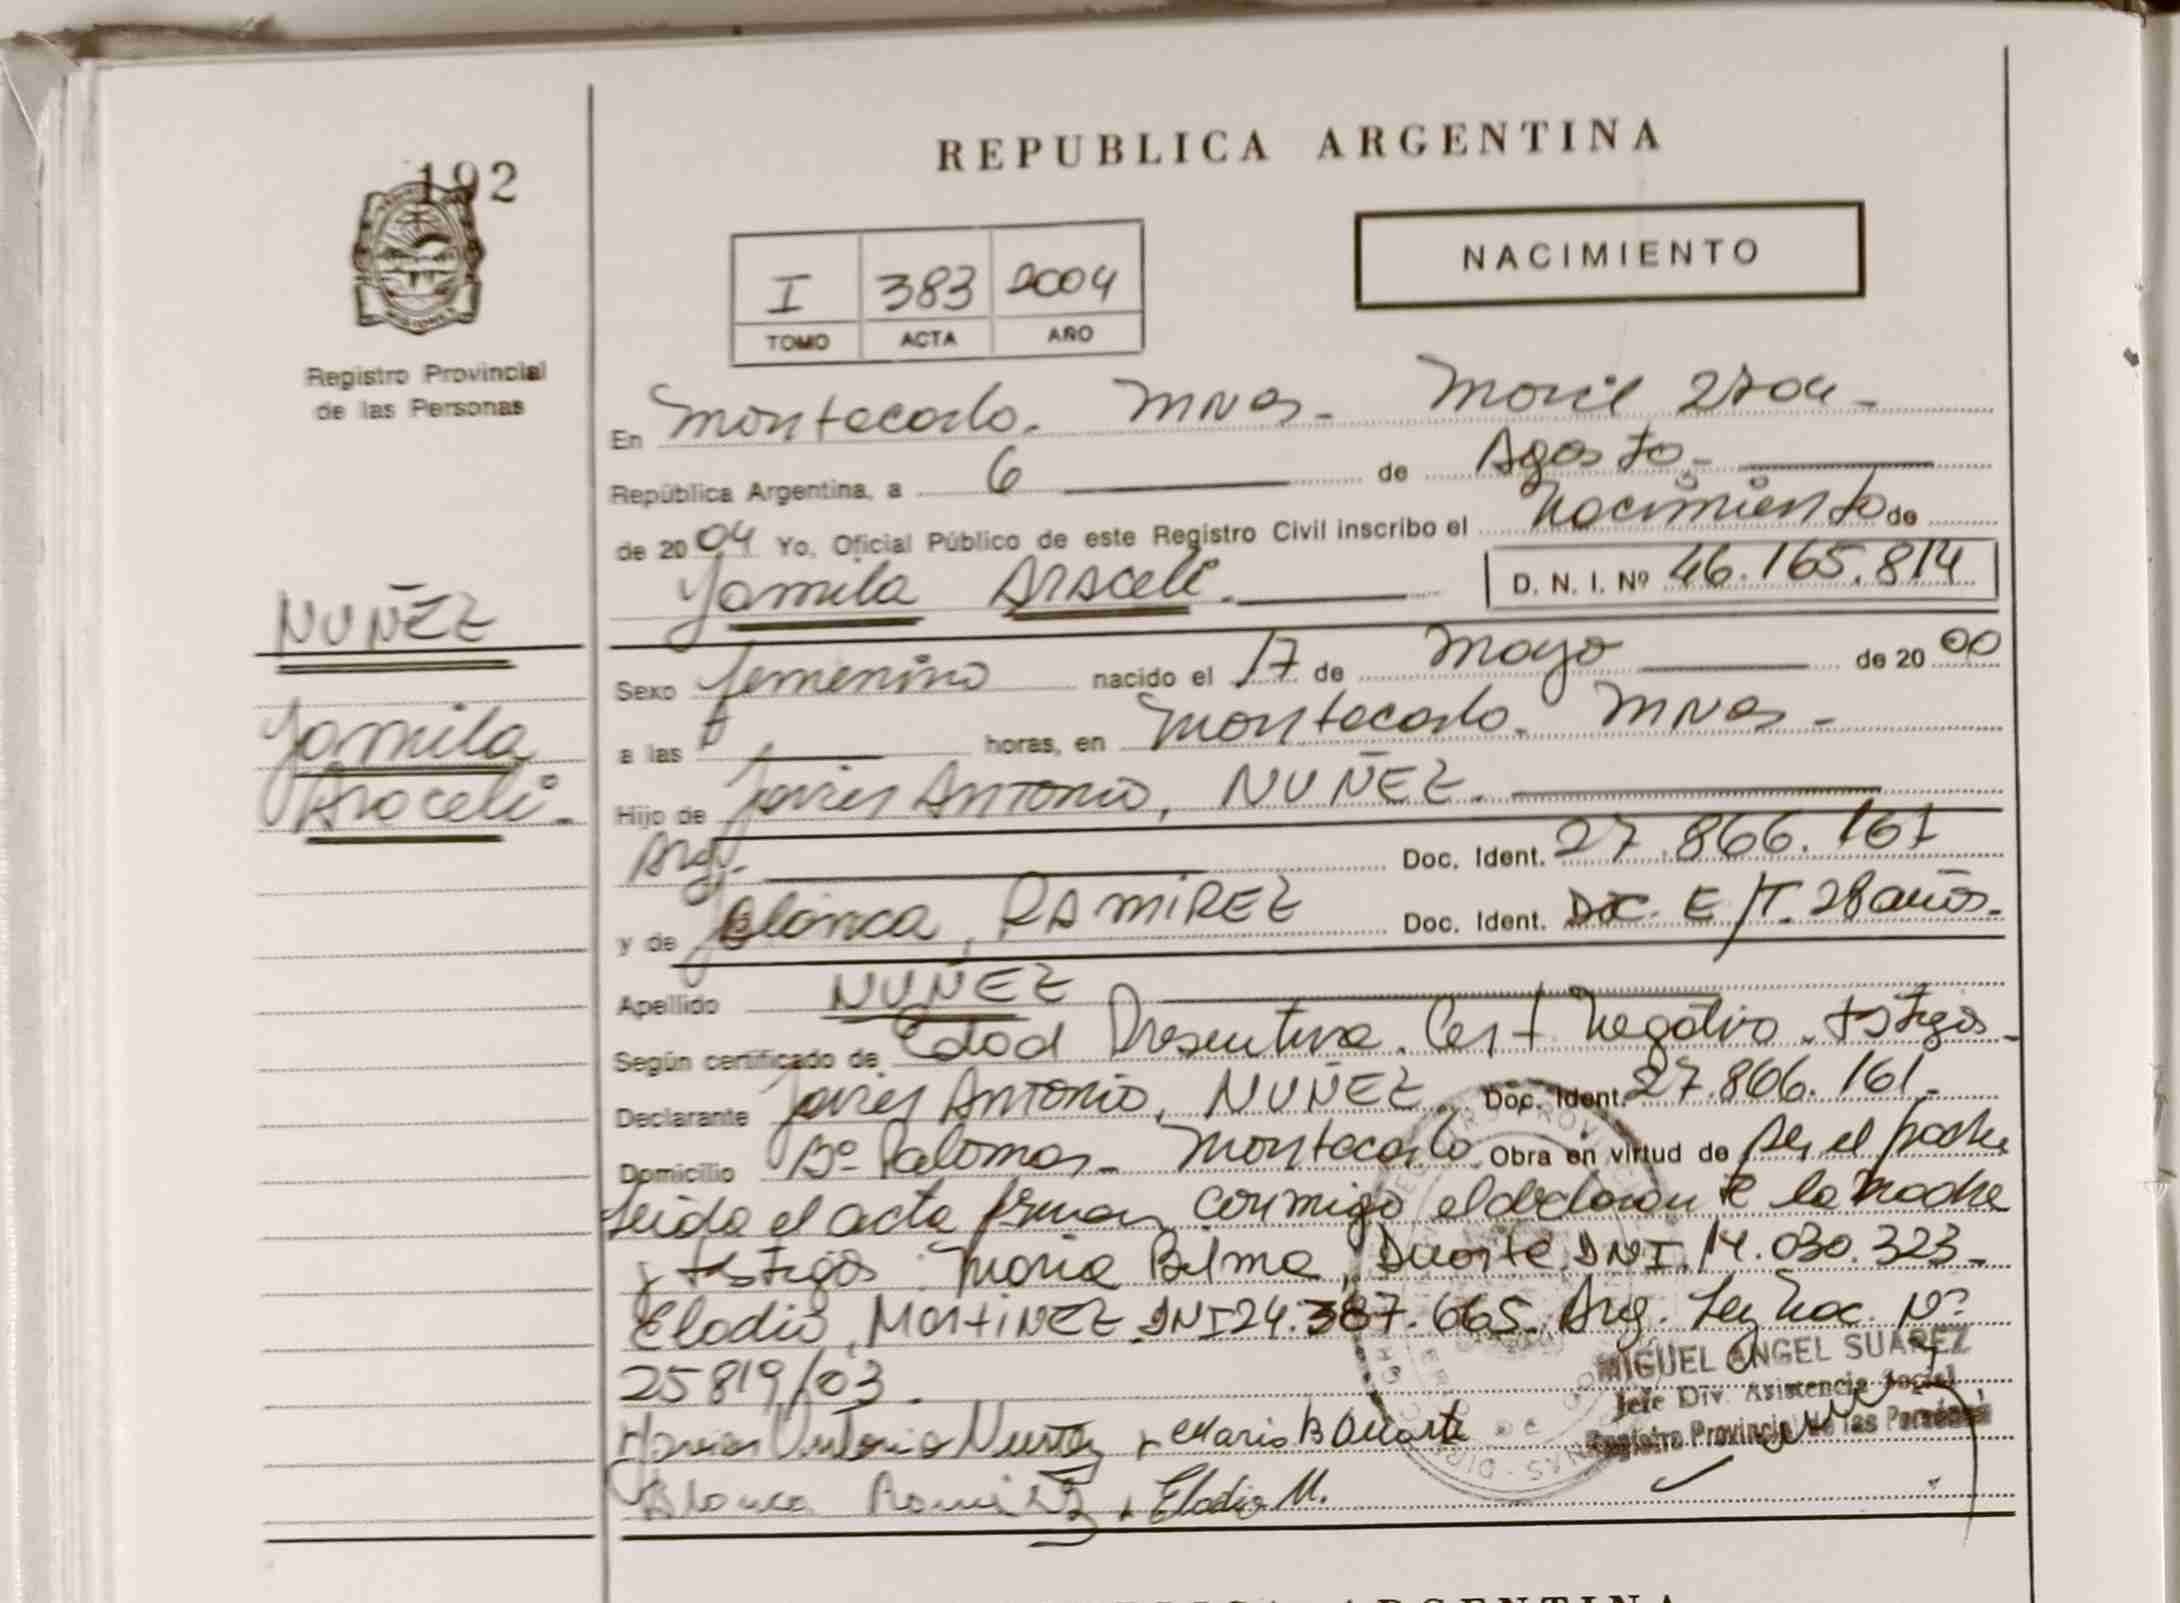 REPUBLICA ARGENTINA
192
NACIMIENTO
I 383 2004
TOMO ACTA AÑO
Registro Provincial
de las Personas
En Montecarlo. Mnes. Movil 2704.
República Argentina, a 6 de Agosto.
de 2004 Yo, Oficial Público de este Registro Civil inscribo el Nacimiento de
Yamila Araceli. D. N. I. Nº 46.165.814
NUÑEZ
Yamila
Araceli.
Sexo femenino nacido el 17 de Mayo de 2000
a las horas, en Montecarlo. Mnes.
Hijo de Javier Antonio, NUÑEZ.
Arg. Doc. Ident. 27.866.161
y de Blanca, RAMIREZ Doc. Ident. Doc. E/T. 28 años.
Apellido NUÑEZ
Según certificado de Edad Presuntiva. Cert Negativo. testigos.
Declarante Javier Antonio, NUÑEZ. Doc. Ident. 27.866.161.
Domicilio Bº Palomar. Montecarlo. Obra en virtud de ser el padre
Leida el acta firman conmigo el declarante la madre
y testigos: Maria Bilma, Duarte. DNI. 14.030.323.
Elodio, MartiNEZ. DNI 24.387.665. Arg. Ley Nac. Nº
25819/03.
MIGUEL ANGEL SUAREZ
Jefe Div. Asistencia Social
Registro Provincial de las Personas
Javier Antonio Nuñez Maria B Duarte
Blanca Ramirez Elodio M.
REPUBLICA ARGENTINA